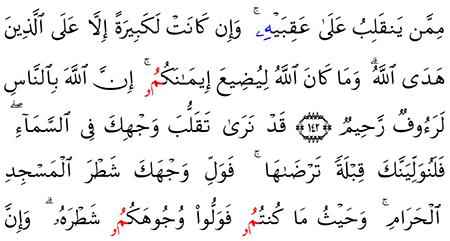 مِمَّن يَنقَلِبُ عَلَىٰ عَقِبَيْهِۦ ۚ وَإِن كَانَتْ لَكَبِيرَةً إِلَّا عَلَى ٱلَّذِينَ
هَدَى ٱللَّهُ ۗ وَمَا كَانَ ٱللَّهُ لِيُضِيعَ إِيمَـٰنَكُمُۥ ۚ إِنَّ ٱللَّهَ بِٱلنَّاسِ
لَرَءُوفٌ رَّحِيمٌ ﴿١٤٢﴾ قَدْ نَرَىٰ تَقَلُّبَ وَجْهِكَ فِى ٱلسَّمَآءِ ۖ
فَلَنُوَلِّيَنَّكَ قِبْلَةً تَرْضَىٰهَا ۚ فَوَلِّ وَجْهَكَ شَطْرَ ٱلْمَسْجِدِ
ٱلْحَرَامِ ۚ وَحَيْثُ مَا كُنتُمُۥ فَوَلُّوا۟ وُجُوهَكُمُۥ شَطْرَهُۥ ۗ وَإِنَّ